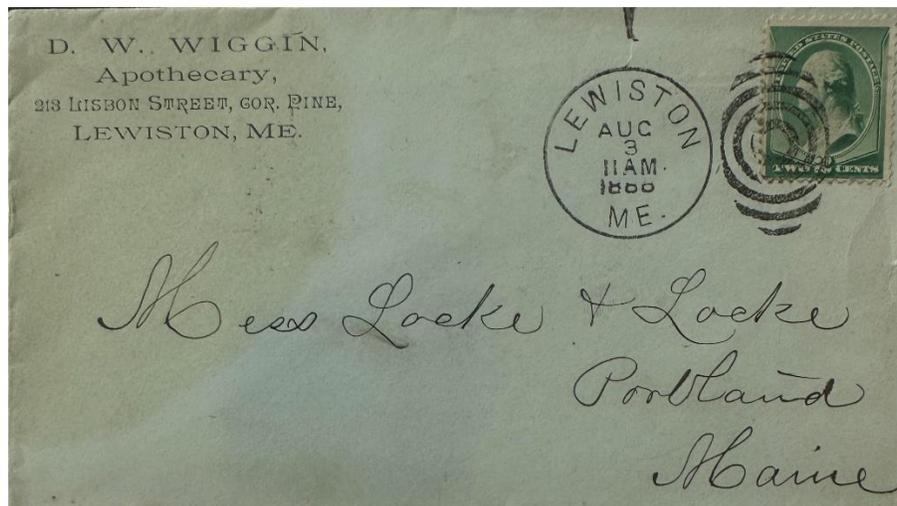 D. W. WIGGIN,
Apothecary,
213 LISBON STREET, COR. PINE,
LEWISTON, ME.
LEWISTON
AUG
3
11AM.
ME.
UNITED STATES POSTAGE
CENTS
Mess Locke & Locke
Portland
Maine